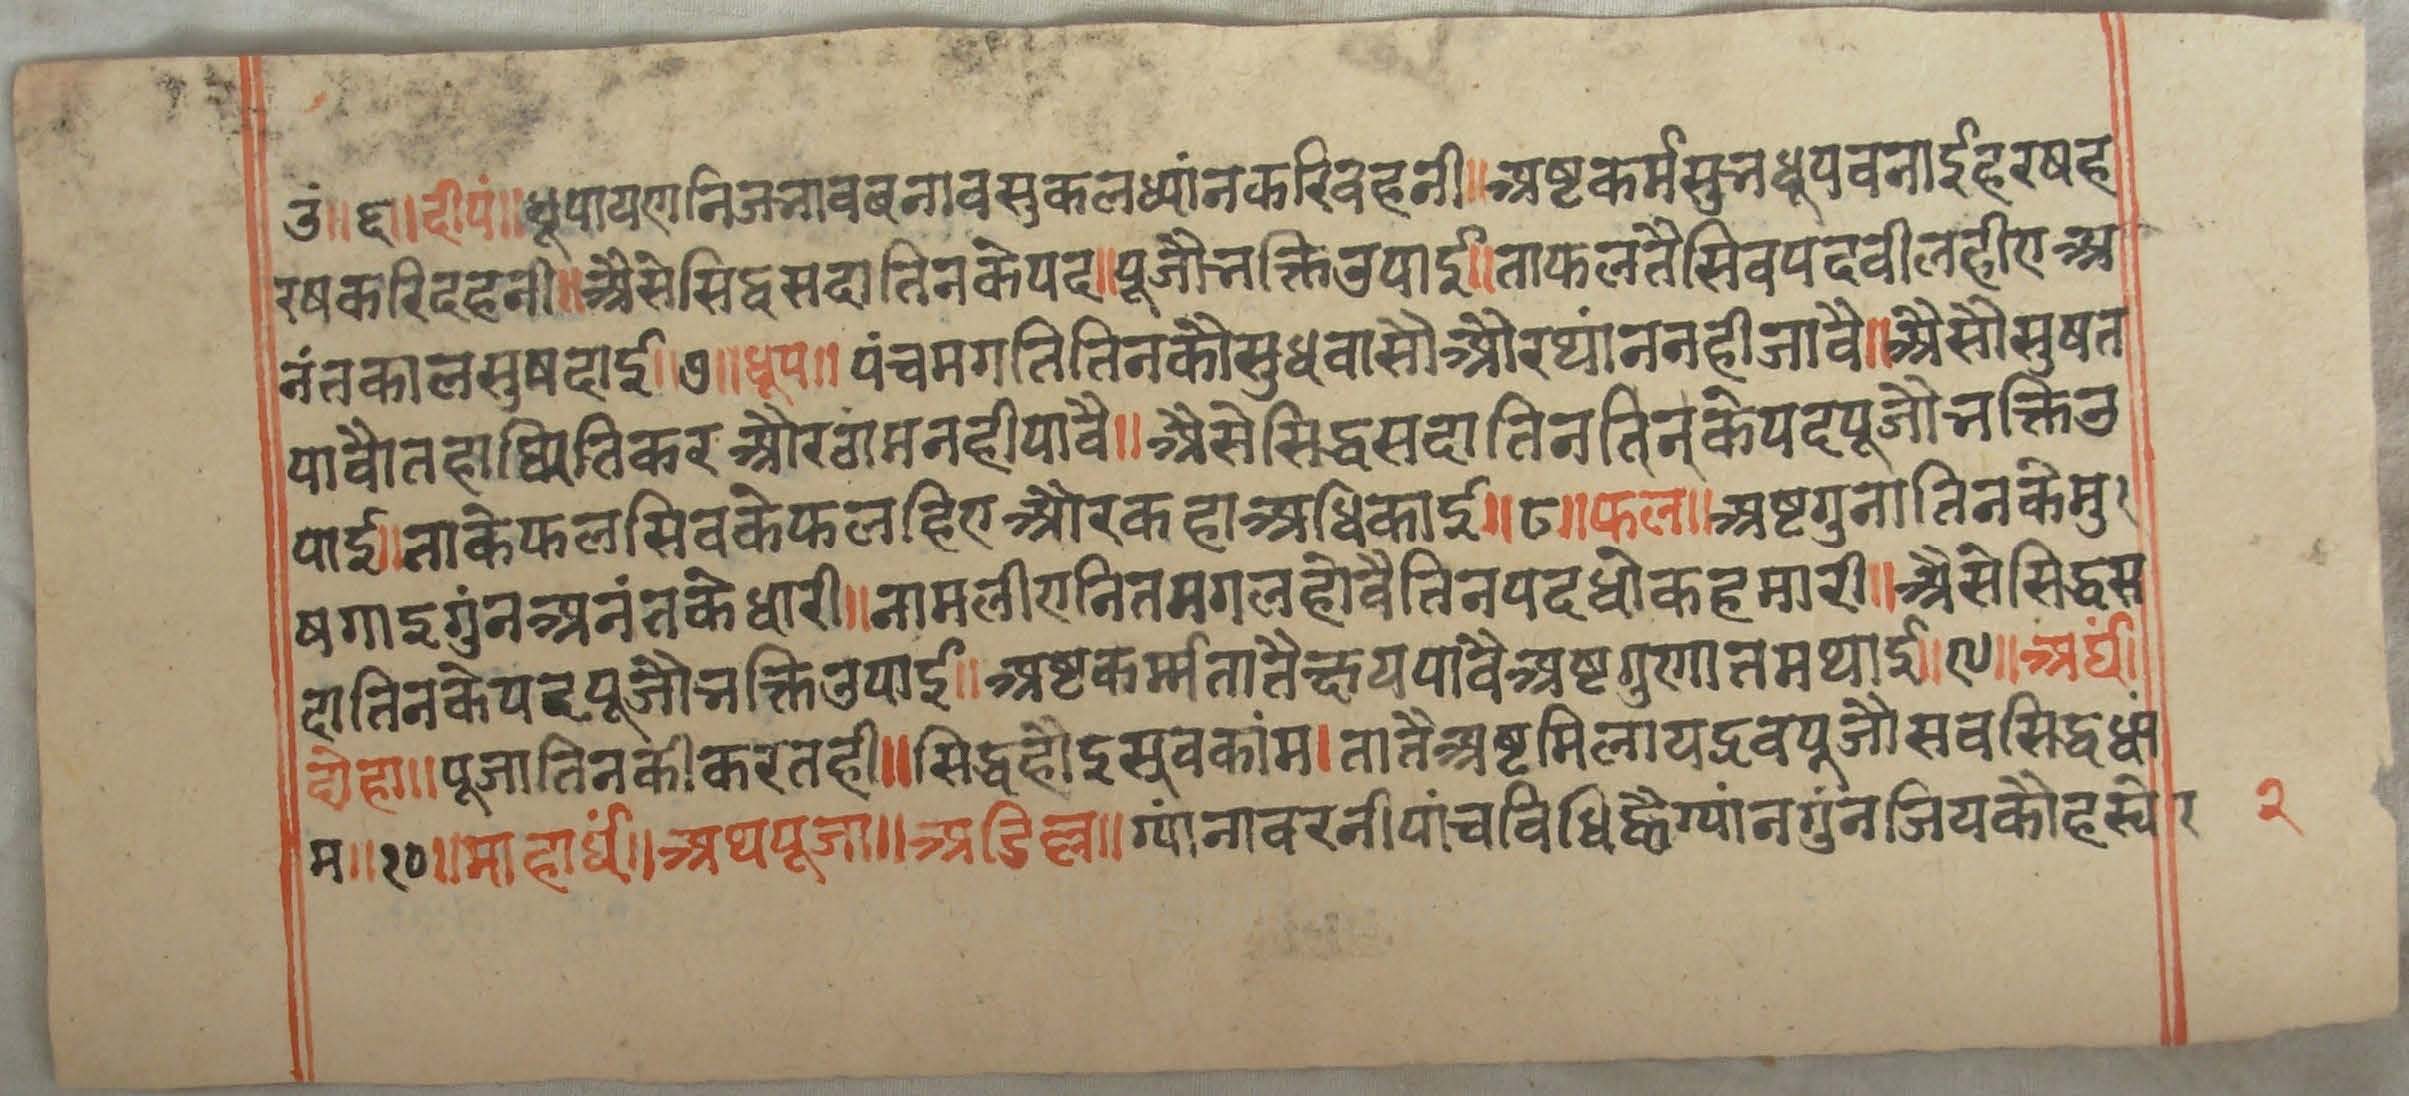 उं॥ ६॥ दीपं॥ धूपायणनिजभावबनावसुकलध्यांनकरिवहनी॥ अष्टकर्मसुभधूपवनाईहरषह
रषकरिदहनी॥ अैसेसिद्धसदातिनकेपद॥ पूजौभक्तिउपाई॥ ताफलतैसिवपदवीलहीएअ
नंतकालसुषदाई॥ ७॥ धूप॥ पंचमगतितिनकौसुधवासौऔरथांननहीजावै॥ अैसौसुषत
पावौतहाथितिकरऔरठामनहीपावै॥ अैसेसिद्धसदातिनतिनकेपदपूजौभक्तिउ
पाई॥ ताकेफलसिवकेफलहिएऔरकहाअधिकाई॥ ८॥ फल॥ अष्टगुनातिनकेमु
षगाइगुंनअनंतकेधारी॥ नामलीएनितमगलहोवैतिनपदधोकहमारी॥ अैसेसिद्धस
दातिनकेपदपूजौभक्तिउपाई॥ अष्टकर्म्मतातैछयपावैअष्टगुणातमथाई॥ ९॥ अर्घं॥
दोहा॥ पूजातिनकीकरतही॥ सिद्धहौइसुवकांम। तातैअष्टमिलायद्रवपूजौसवसिद्धधां
म॥ १०॥ माहार्घं॥ अथपूजा॥ अडिल्ल॥ ग्यांनावरनीपांचविधिह्वैग्यांनगुंनजियकौहस्घेर
२